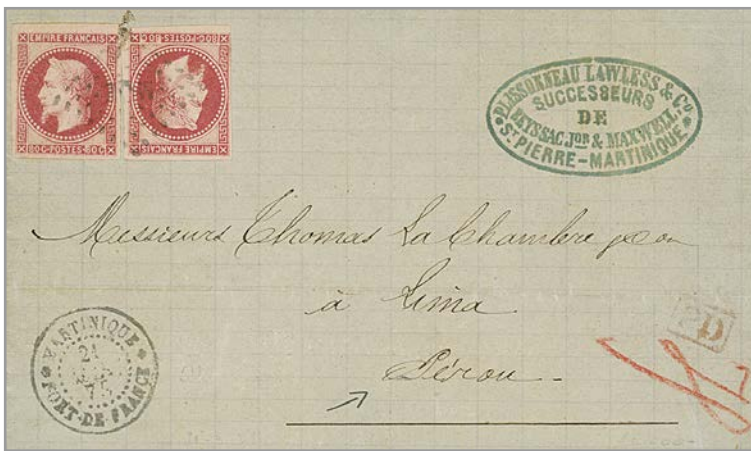 EMPIRE FRANÇAIS
80C·POSTES·80C
80C·POSTES·80C
EMPIRE FRANÇAIS
PLISSONNEAU LAWLESS & Co
SUCCESSEURS
DE
PEYSSAC JOR & MAXWELL
ST PIERRE-MARTINIQUE
Messieurs Thomas La Chambre
à Lima
Pérou
PD
MARTINIQUE
21
75
FORT-DE-FRANCE